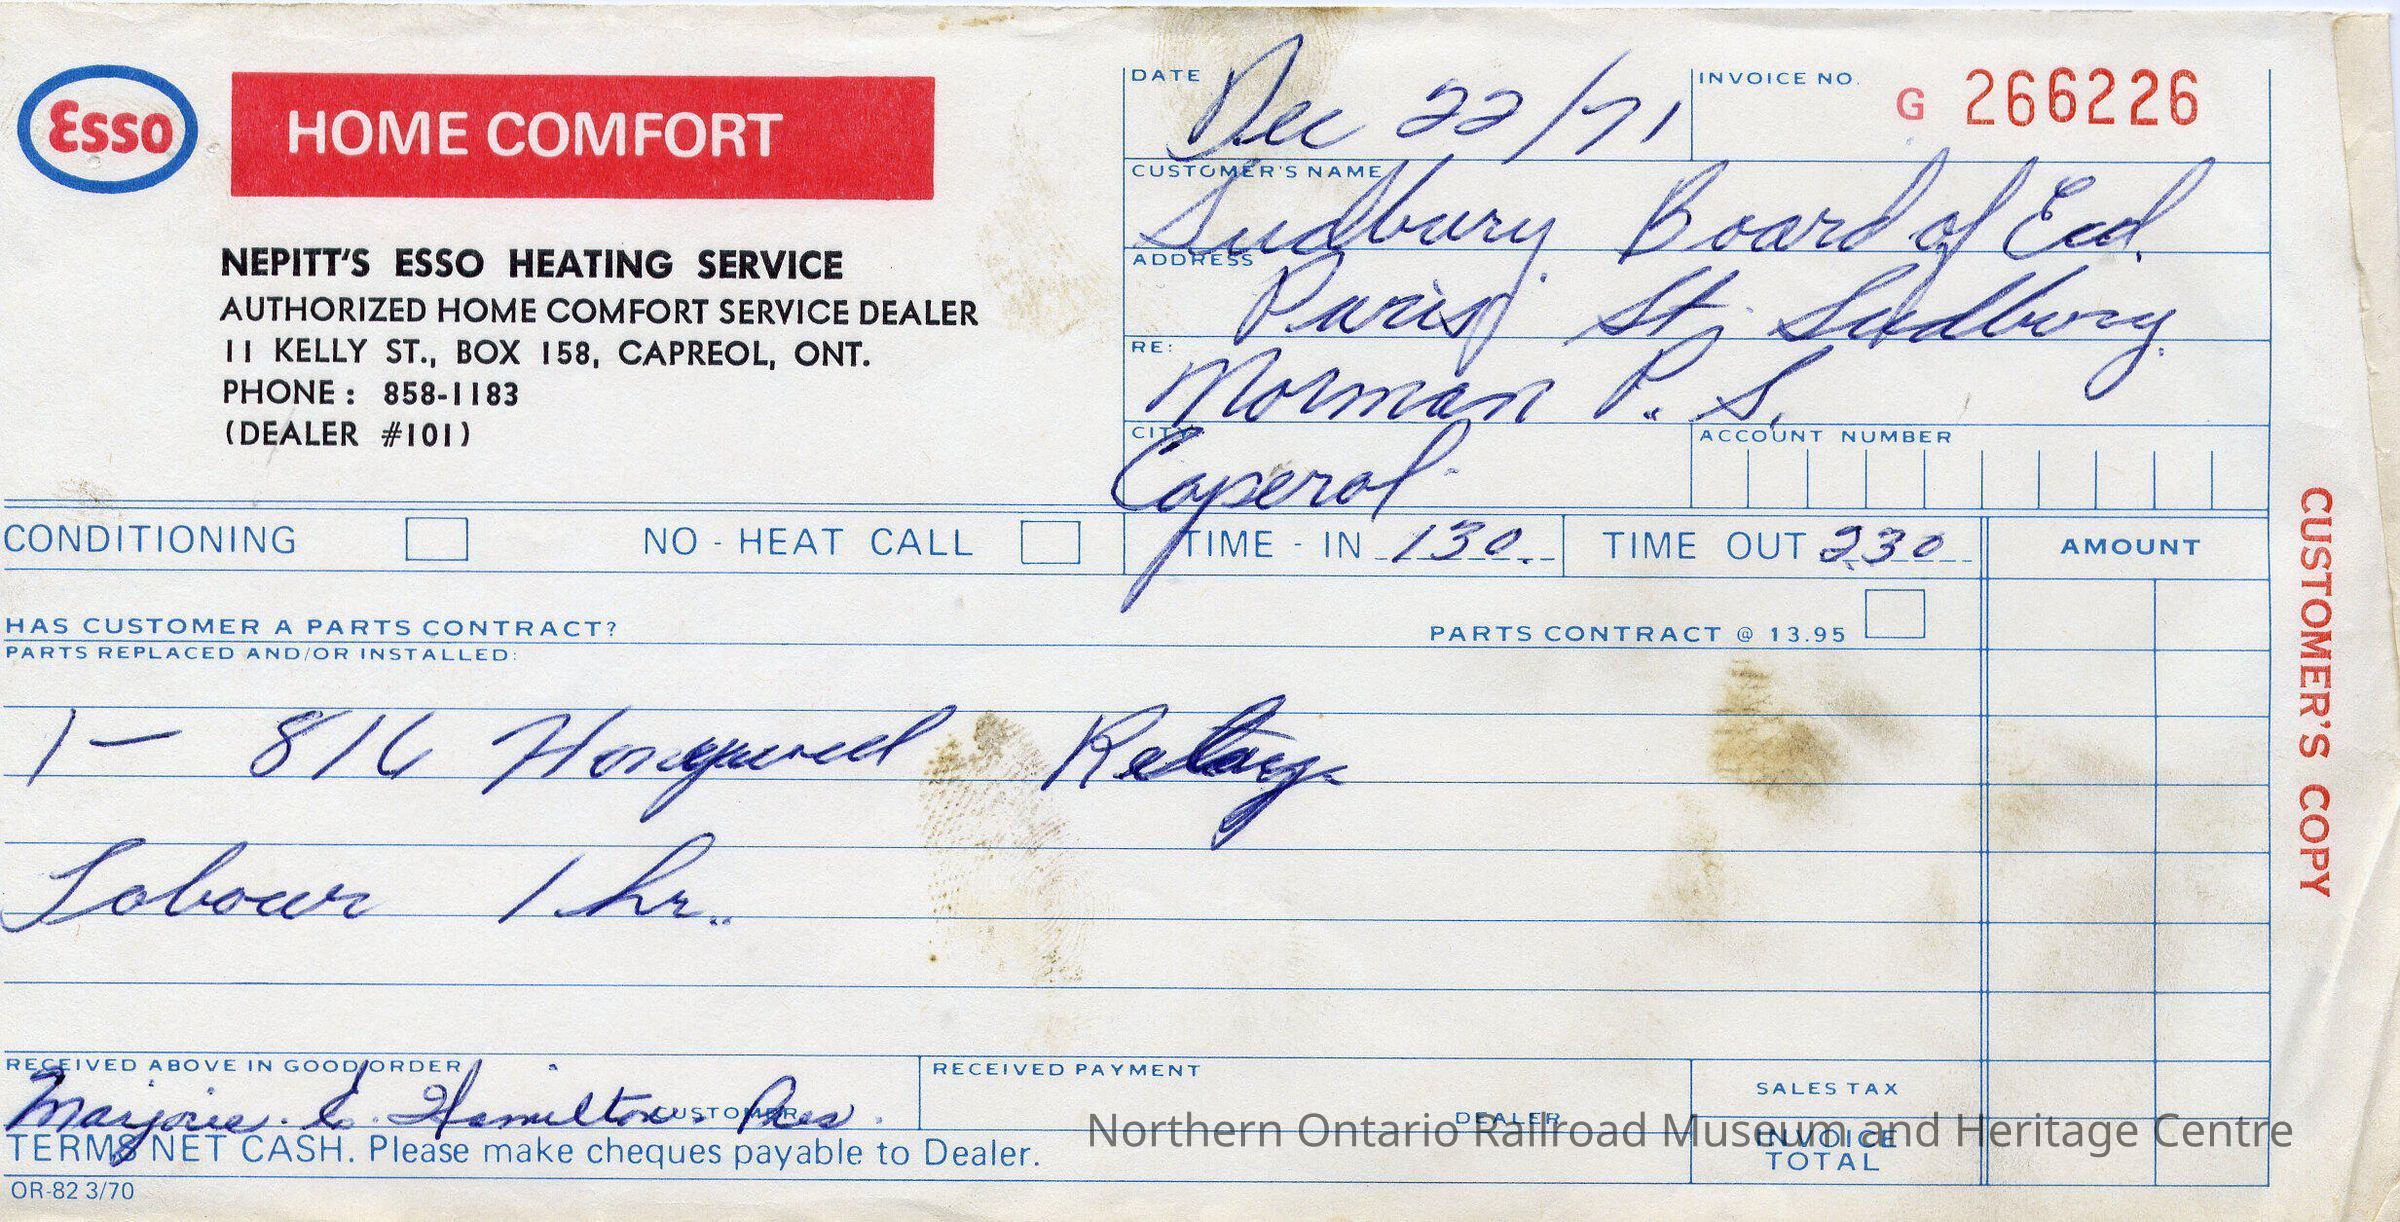 Esso HOME COMFORT
NEPITT'S ESSO HEATING SERVICE
AUTHORIZED HOME COMFORT SERVICE DEALER
11 KELLY ST., BOX 158, CAPREOL, ONT.
PHONE: 858-1183
(DEALER #101)
DATE Dec 22/71
INVOICE NO. G 266226
CUSTOMER'S NAME
Sudbury Board of Ed.
ADDRESS
Paris St; Sudbury
RE:
Norman P. S.
CITY
Caperol
ACCOUNT NUMBER
CONDITIONING NO-HEAT CALL TIME-IN 130 TIME OUT 230 AMOUNT
HAS CUSTOMER A PARTS CONTRACT? PARTS CONTRACT @ 13.95
PARTS REPLACED AND/OR INSTALLED:
1- 816 Honeywell
Labour 1 hr.
RECEIVED ABOVE IN GOOD ORDER
Marjorie Hamilton
CUSTOMER
RECEIVED PAYMENT
DEALER
SALES TAX
INVOICE
TOTAL
TERMS NET CASH. Please make cheques payable to Dealer.
OR-82 3/70
CUSTOMER'S COPY
Northern Ontario Railroad Museum and Heritage Centre